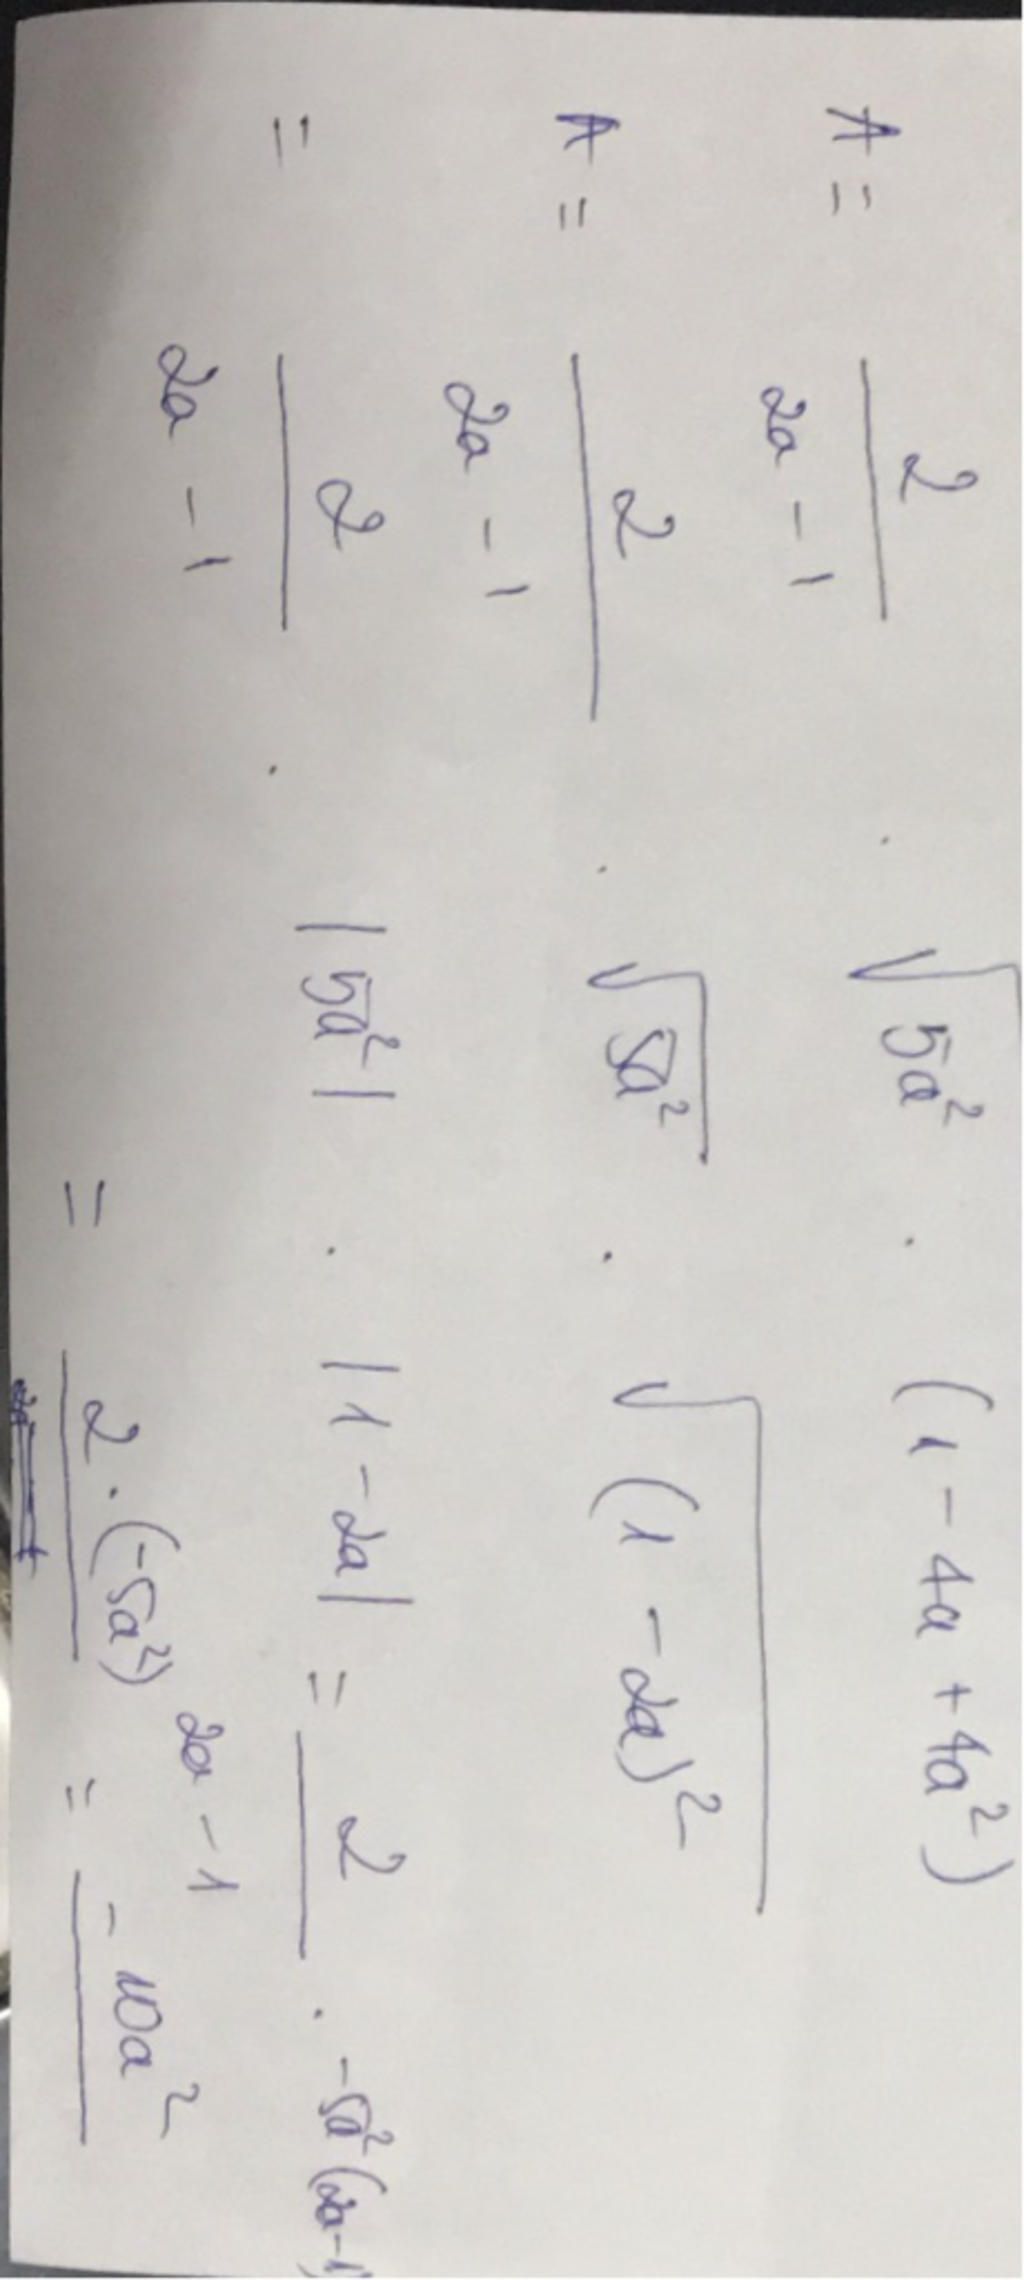 A = 2/(2a - 1) . √5a² . (1 - 4a + 4a²)
A = 2/(2a - 1) . √5a² . √(1 - 2a)²
= 2/(2a - 1) . |5a²| . |1 - 2a| = 2/(2a - 1) . -5a²(2a-1)
= 2.(-5a²) = -10a²